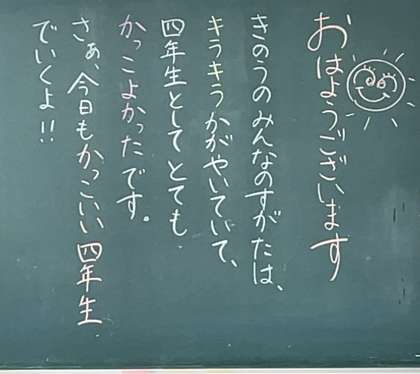 おはようございます
きのうのみんなのすがたは、
キラキラかがやいていて、
四年生として とても
かっこよかったです。
さぁ、今日もかっこいい四年生
でいくよ!!